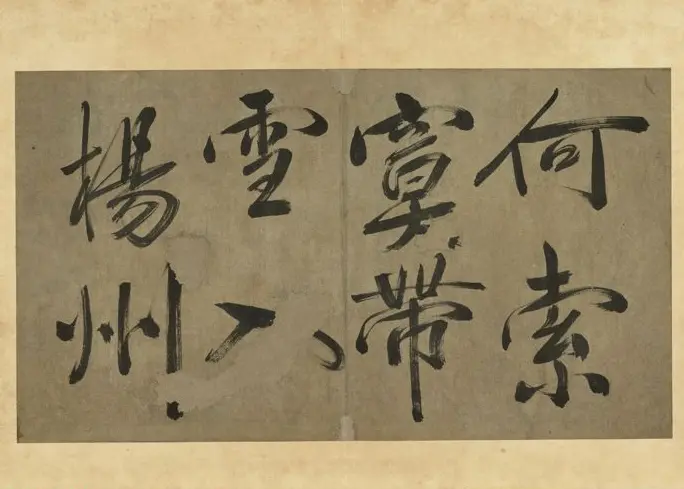 何索
寞帶
雪入
楊州